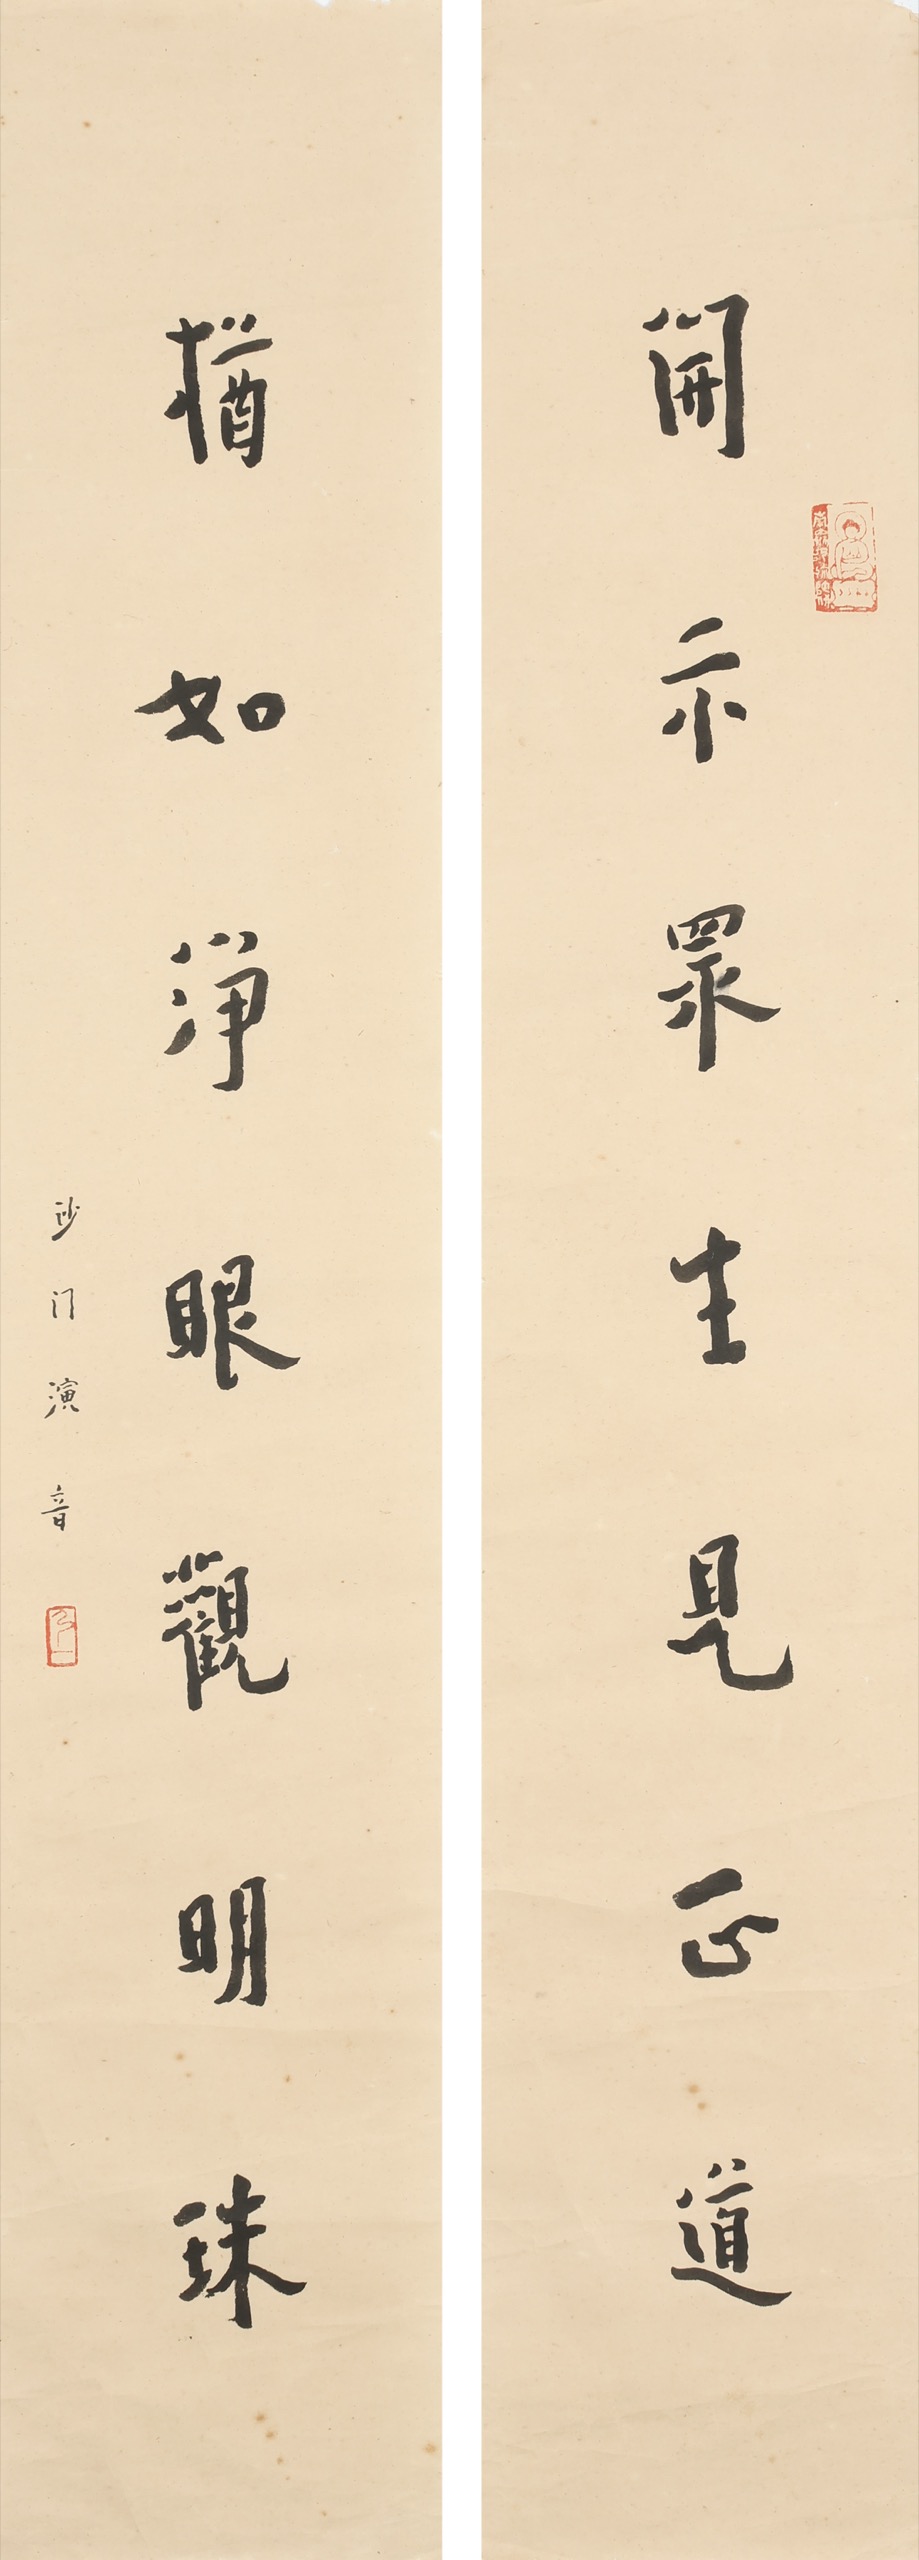 開示眾生見正道
猶如淨眼觀明珠
沙门演音